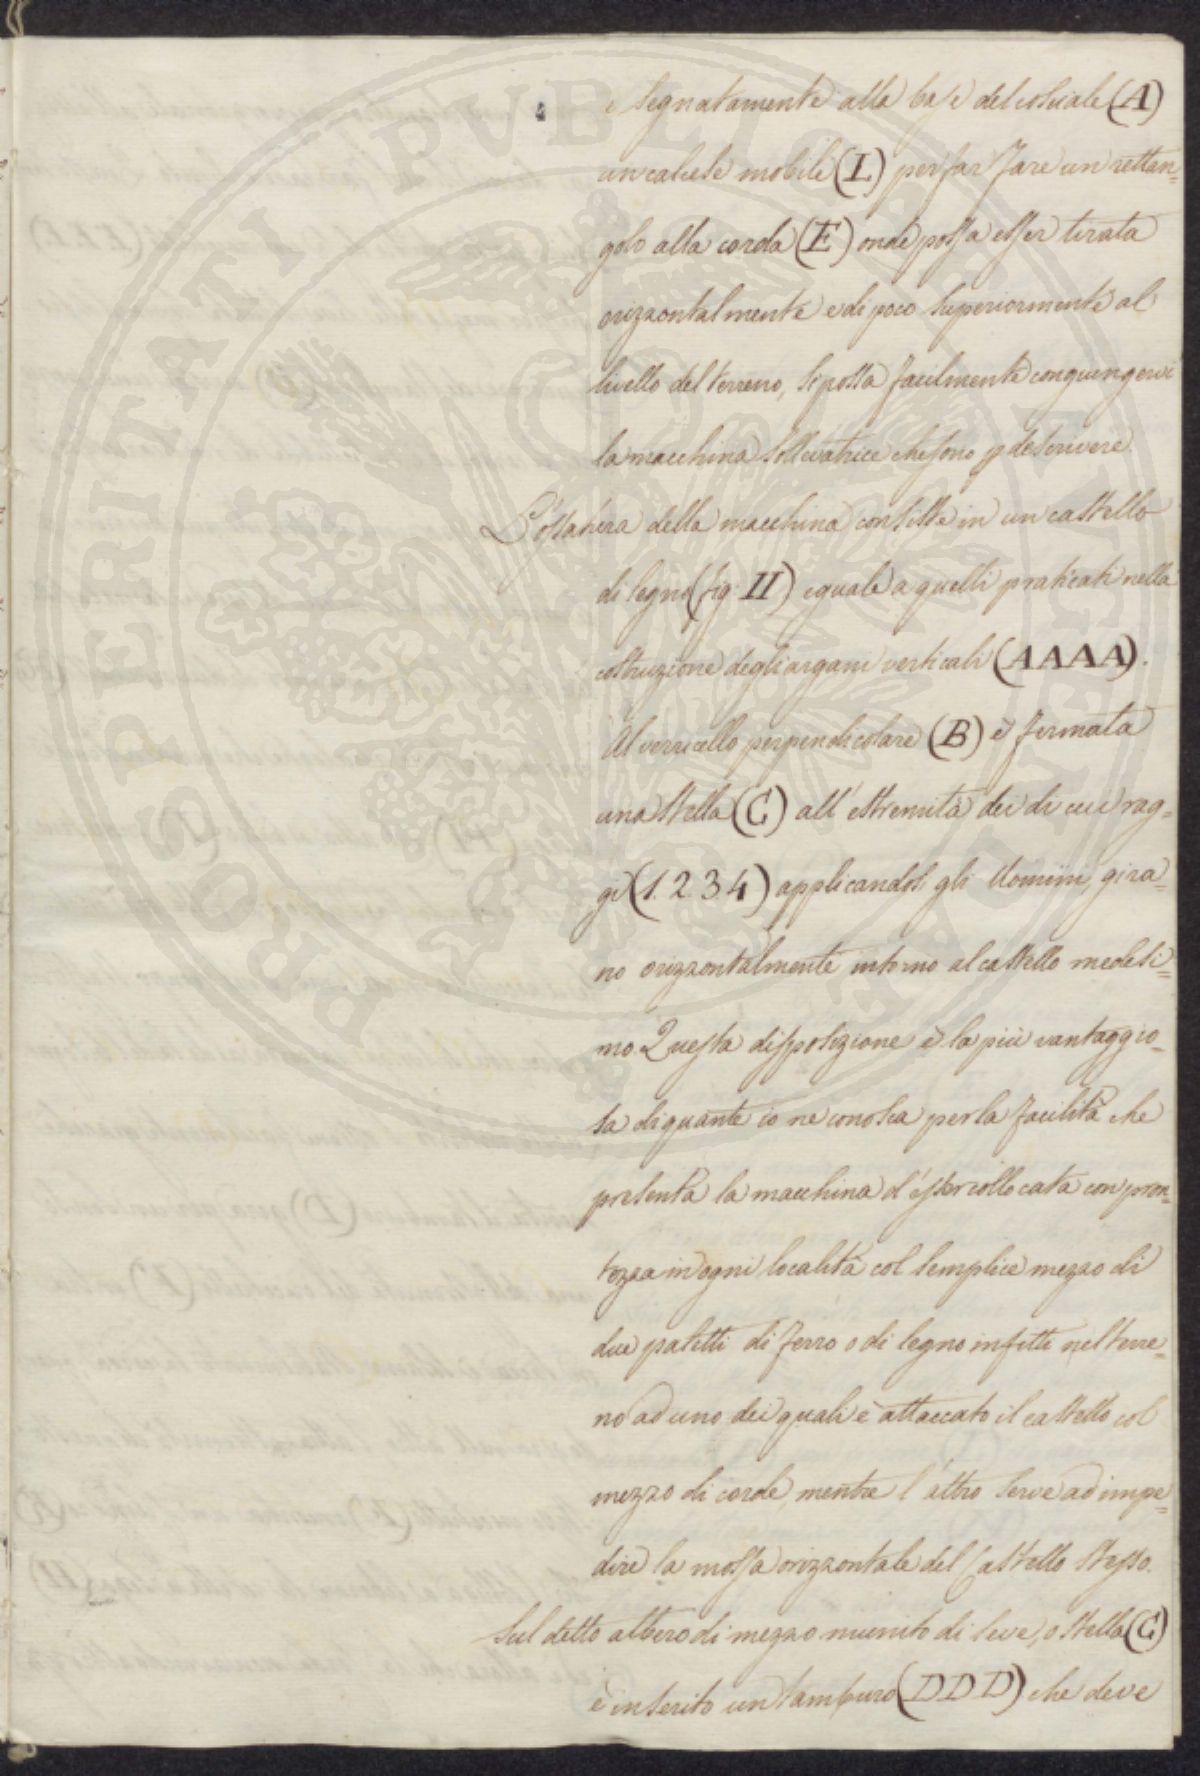 e segnatamente alla base del cosciale (A)
un calcese mobile (L) per far fare un rettan=
golo alla corda (E) onde possa esser tirata
orizzontalmente e di poco superiormente al
livello del terreno, si possa facilmente congiungervi
la macchina sollevatrice che sono p descrivere.
L'ossatura della macchina consiste in un castello
di legno (fig. II) eguale a quelli praticati nella
costruzione degli argani verticali (AAAA).
Al verricello perpendicolare (B) è fermata
una stella (C) all'estremità dei di cui rag=
gi (1. 2. 3. 4) applicandosi gli Uomini, gira=
no orizzontalmente intorno al castello medesi=
mo. Questa disposizione è la più vantaggio=
sa di quante io ne conosca per la facilità che
presenta la macchina d'esser collocata con pron=
tezza in ogni località col semplice mezzo di
due paletti di ferro o di legno infitti nel terre=
no ad uno dei quali è attaccato il castello col
mezzo di corde, mentre l'altro serve ad impe=
dire la mossa orizzontale del Castello stesso.
Sul detto albero di mezzo munito di leve, o stella (C)
è inserito un tamburo (DDD) che deve
PROSPERITATI PUBLICAE AUGENDAE